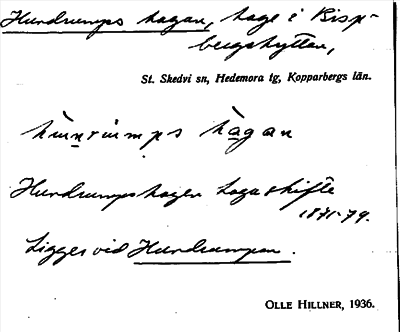 Hundrumps hagen, hage i Bisp-
bergshyttan,
St. Skedvi sn, Hedemora tg, Kopparbergs län.
hùnrùmps hàgan
Hundrumpshagen Laga skifte
1871-79.
Ligger vid Hundrumpan.
OLLE HILLNER, 1936.